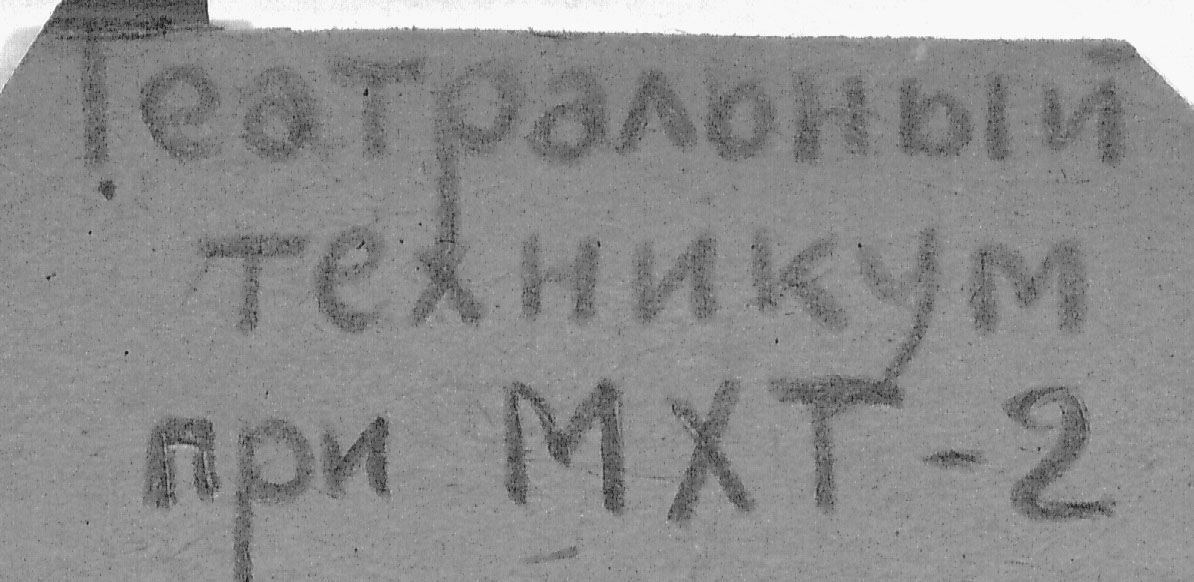 Театралоный
техникум
при МХТ-2